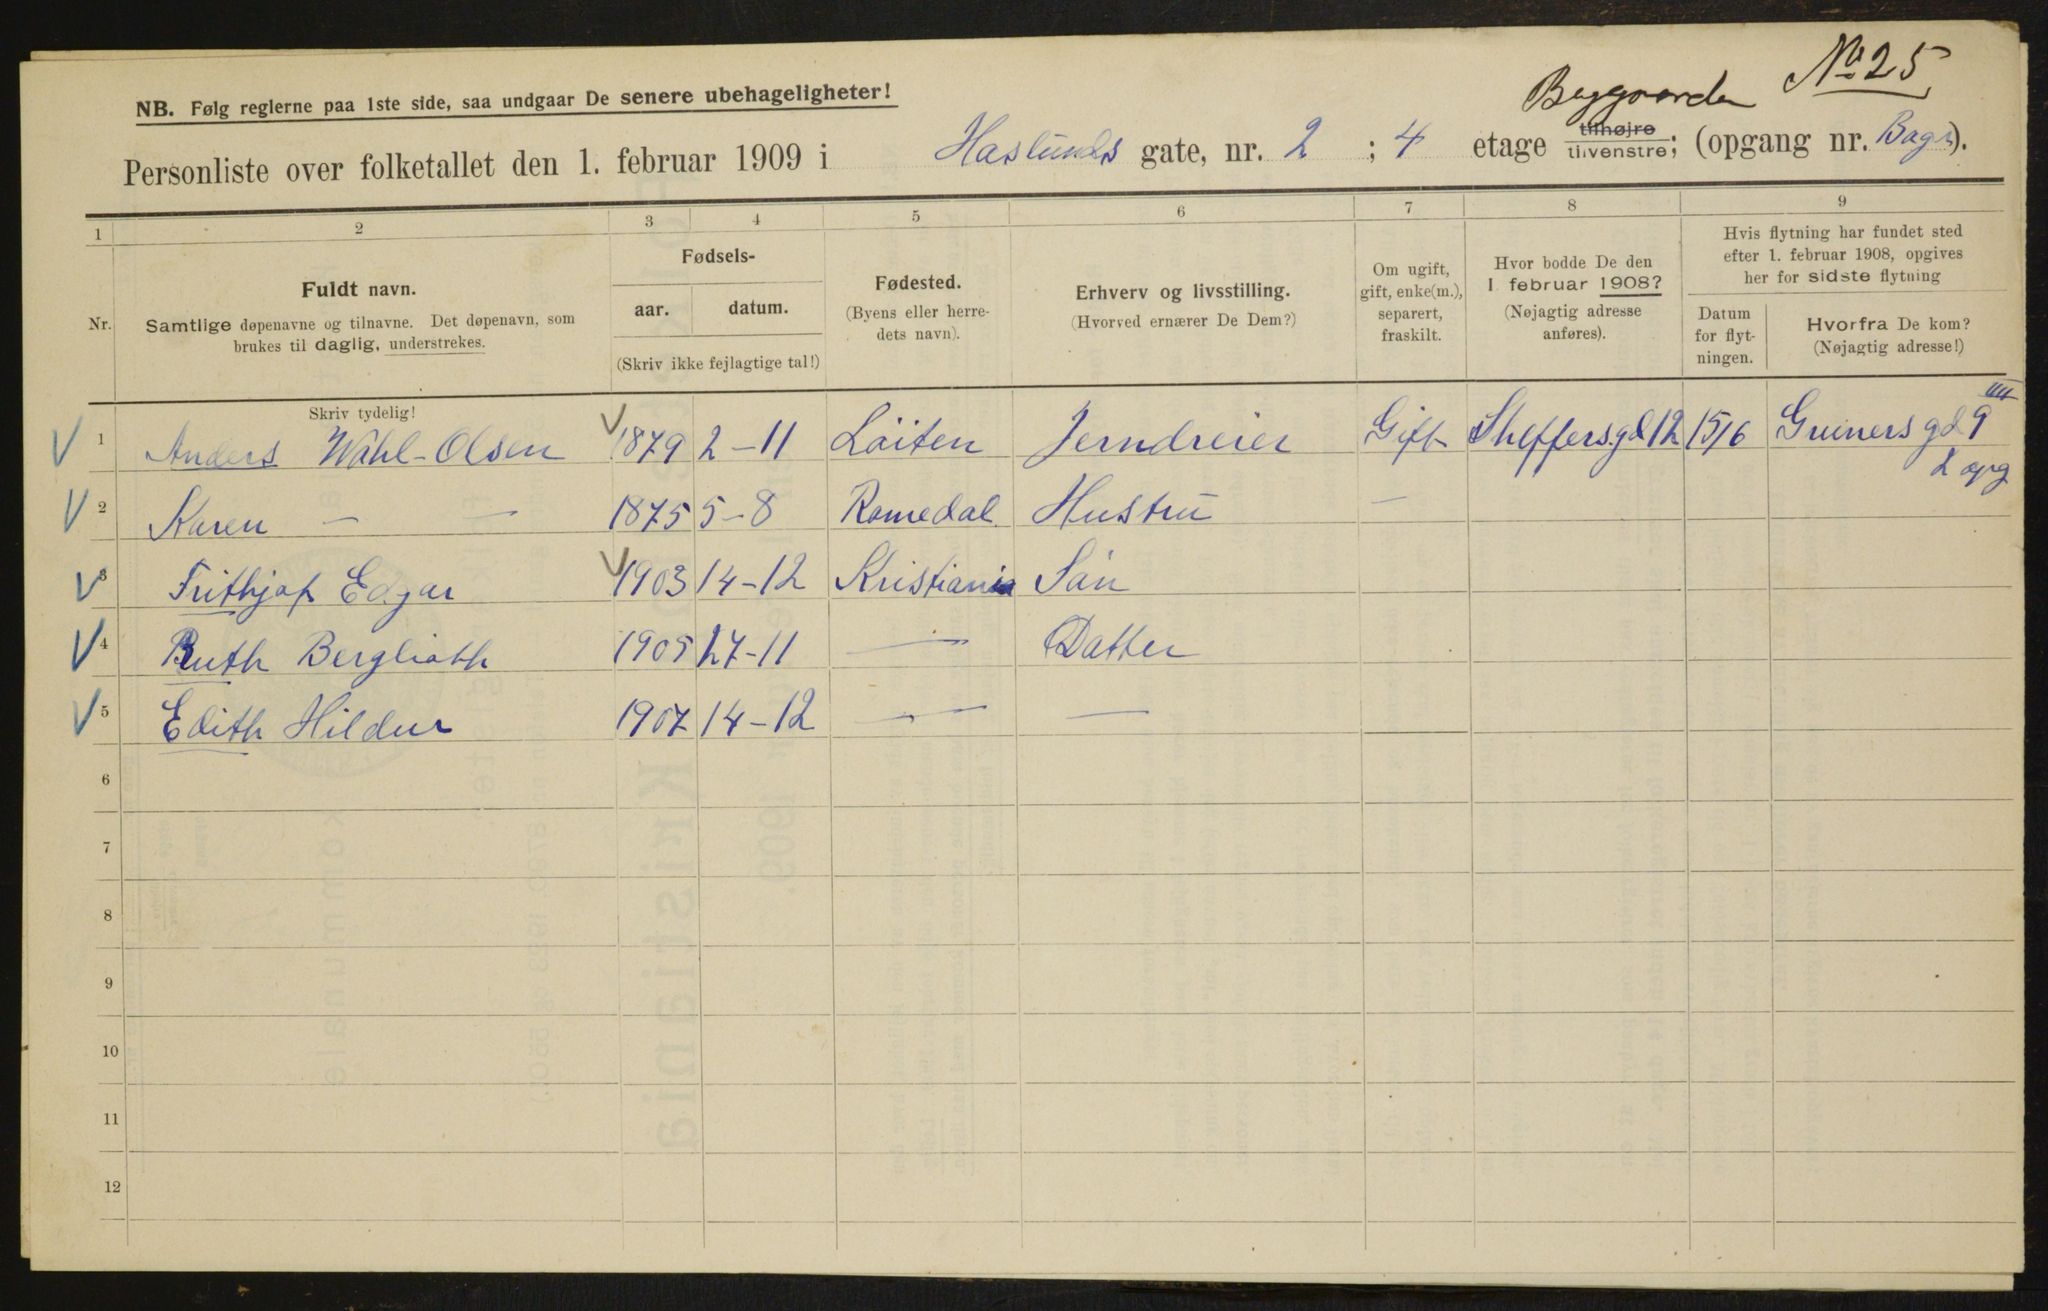 Baggaarden No 25
NB. Følg reglerne paa 1ste side, saa undgaar De senere ubehageligheter!
Personliste over folketallet den 1. februar 1909 i Haslunds gate, nr. 2 ; 4 etage tilhøjre tilvenstre; (opgang nr. Bagr).
1 2 3 4 5 6 7 8 9
Nr.
Fuldt navn.
Samtlige døpenavne og tilnavne. Det døpenavn, som
brukes til daglig, understrekes.
Fødsels-
aar. datum.
(Skriv ikke fejlagtige tal!)
Fødested.
(Byens eller herre-
dets navn).
Erhverv og livsstilling.
(Hvorved ernærer De Dem?)
Om ugift,
gift, enke(m.),
separert,
fraskilt.
Hvor bodde De den
1 februar 1908?
(Nøjagtig adresse
anføres).
Hvis flytning har fundet sted
efter 1. februar 1908, opgives
her for sidste flytning
Datum
for flyt-
ningen.
Hvorfra De kom?
(Nøjagtig adresse!)
Skriv tydelig!
1 Anders Wahl-Olsen 1879 2-11 Löiten Jerndreier Gift Sheffersgd 12 15/6 Gruners gd 9 IIII
2 opg
2 Karen — — 1875 5-8 Romedal Hustru —
3 Frithjof Edgar 1903 14-12 Kristiania Sön
4 Ruth Bergliotth 1905 27-11 — Datter
5 Edith Hildur 1907 14-12 — —
6
7
8
9
10
11
12